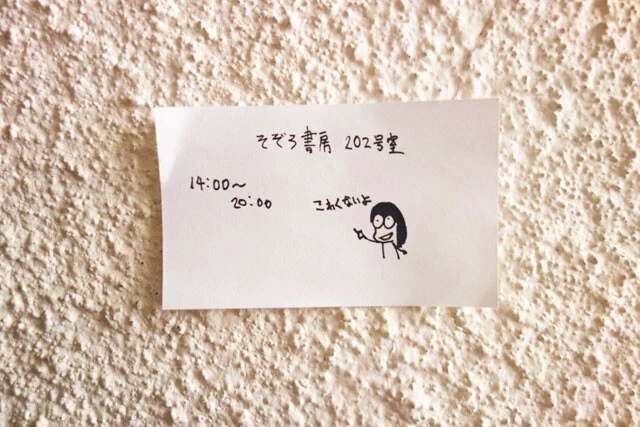 そぞろ書房 202号室
14:00～
20:00
こわくないよ